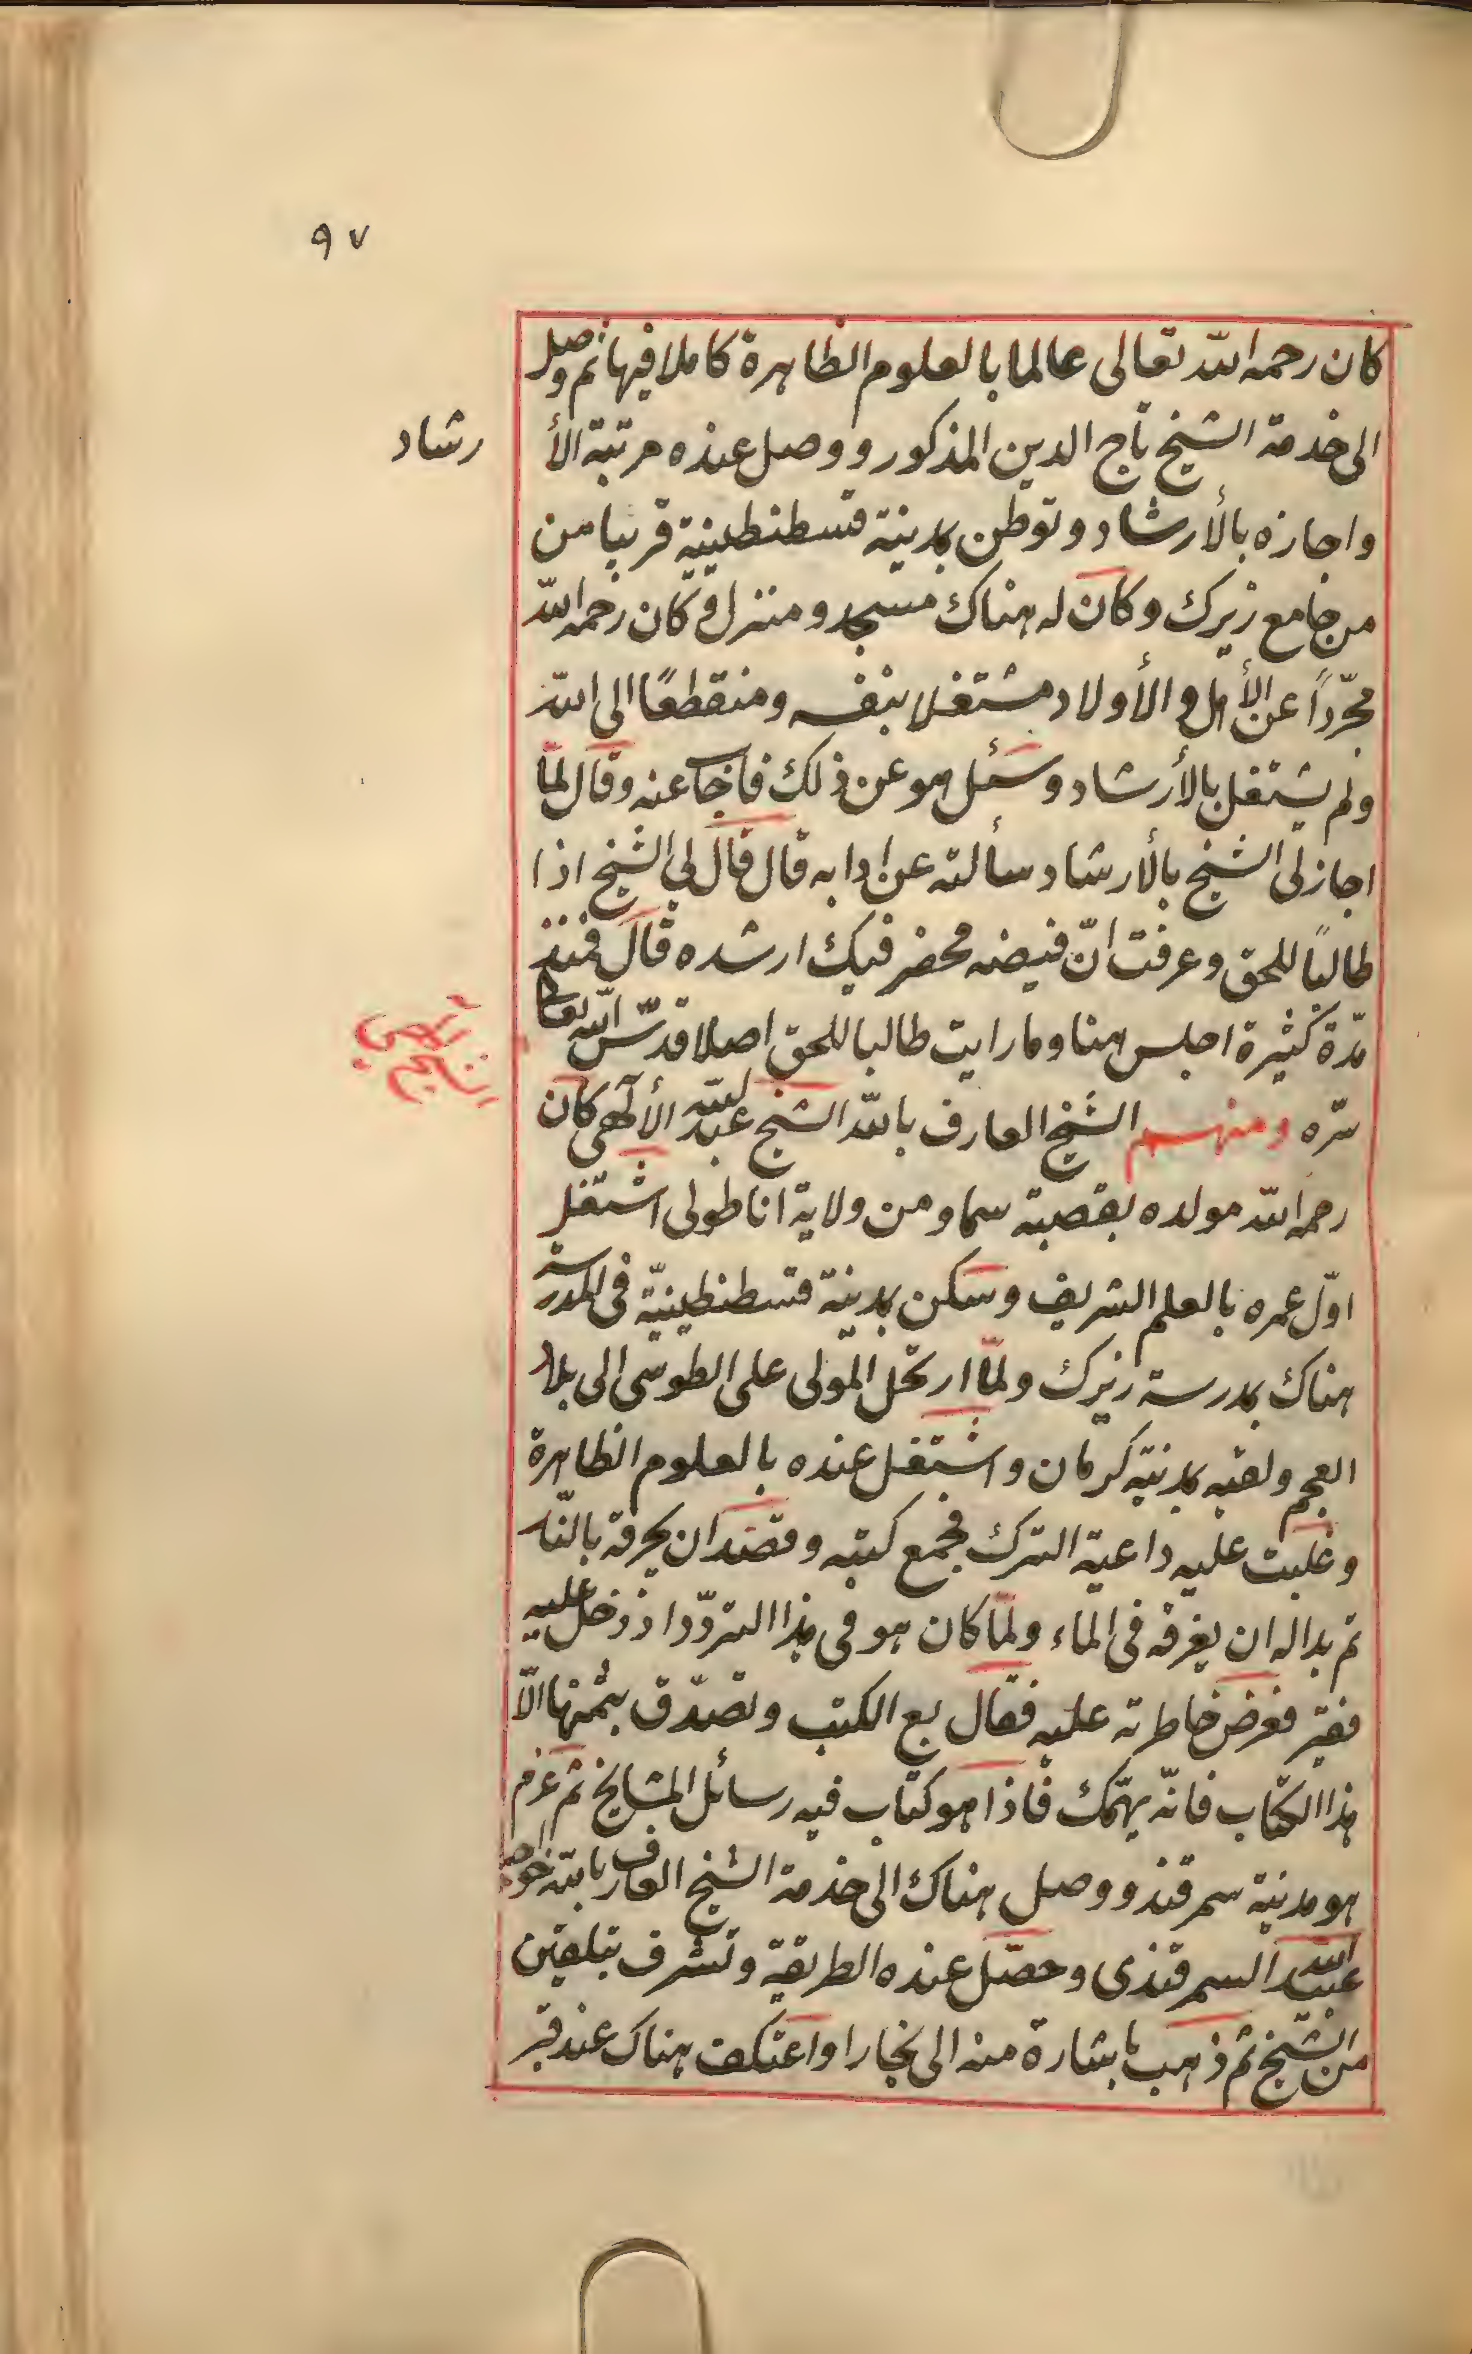 ٩٧
كان رحمه الله تعالى عالما بالعلوم الظاهرة كاملا فيها ثم وصل
الى خدمة الشيخ تاج الدين المذكور ووصل عنده مرتبة الأ
رشاد
واجازه بالأرشاد وتوطن بمدينة قسطنطينية قريبا من
من جامع زيرك وكان له هناك مسجد ومنزل وكان رحمه الله
مجرّداً عن الأهل والأولاد مشتغلا بنفسه ومنقطعًا الى الله
ولم يشتغل بالأرشاد وسئل هو عن ذلك فاجاب عنه وقال لمّا
اجاز لى الشيخ بالأرشاد سألته عن ادابه قال قال لي الشيخ اذا
طالبًا للحق وعرفت انّ فيضه محضر فيك ارشده قال فمنذ
مدّة كثيرة اجلس هنا وما رايت طالبا للحق اصلا قدّس الله تعالى
سرّه ومنهم الشيخ العارف بالله الشيخ عبد الله الألهى كان
رحمه الله مولده بقصبة سماو من ولاية اناطولى اشتغل
اوّل عمره بالعلم الشريف وسكن بمدينة قسطنطينيّة فى المدرسة
هناك بمدرسة زيرك ولمّا ارتحل المولى على الطوسى الى بلاد
العجم ولقيه بمدينة كرمان واشتغل عنده بالعلوم الظاهرة
وغلبت عليه داعية الترك فجمع كتبه وقصد ان يحرقه بالنّار
ثم بدا له ان يغرقه فى الماء ولمّا كان هو فى هذا التردّد اذ دخل عليه
فقير فعرض خاطرته عليه فقال بع الكتب وتصدّق بثمنها الّا
هذا الكتاب فانّه يهمّك فاذا هو كتاب فيه رسائل المشايخ ثم عزم
هو مدينة سمرقند ووصل هناك الى خدمة الشيخ العارف بالله خواجه
عبيد الله السمرقندى وحصّل عنده الطريقة وتشرف بتلقين
من الشيخ ثم ذهب باشارة منه الى بخارا واعتكف هناك عند قبر